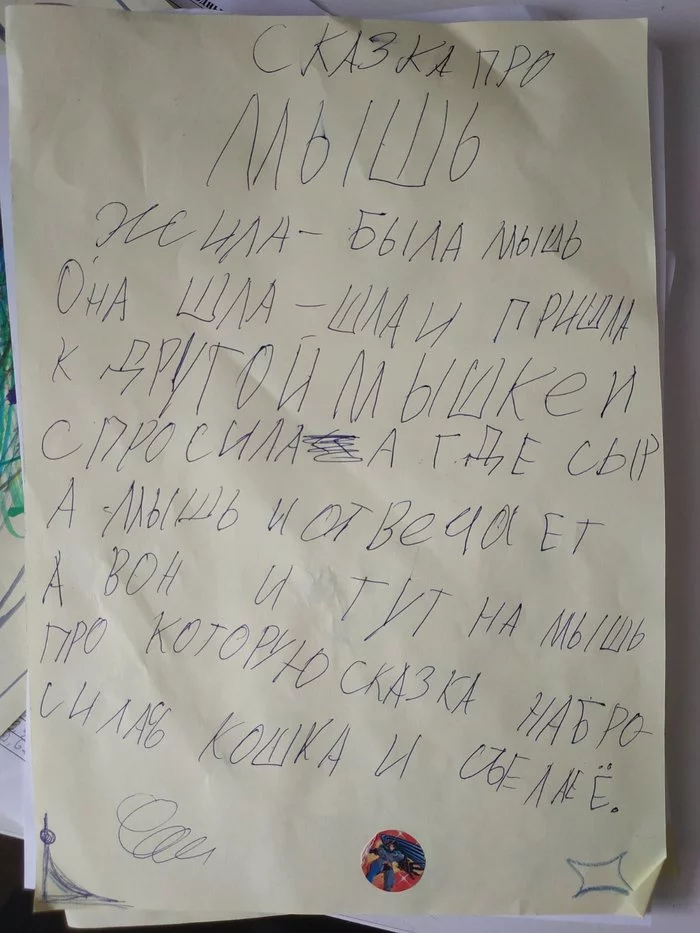 СКАЗКА ПРО
МЫШЬ
ЖИЛА- БЫЛА МЫШЬ
ОНА ШЛА-ШЛА И ПРИШЛА
К ДРУГОЙ МЫШКЕ И
СПРОСИЛА А ГДЕ СЫР
А МЫШЬ И ОТВЕЧАЕТ
А ВОН И ТУТ НА МЫШЬ
ПРО КОТОРУЮ СКАЗКА НАБРО-
СИЛАЬ КОШКА И СЪЕЛА ЕЁ.